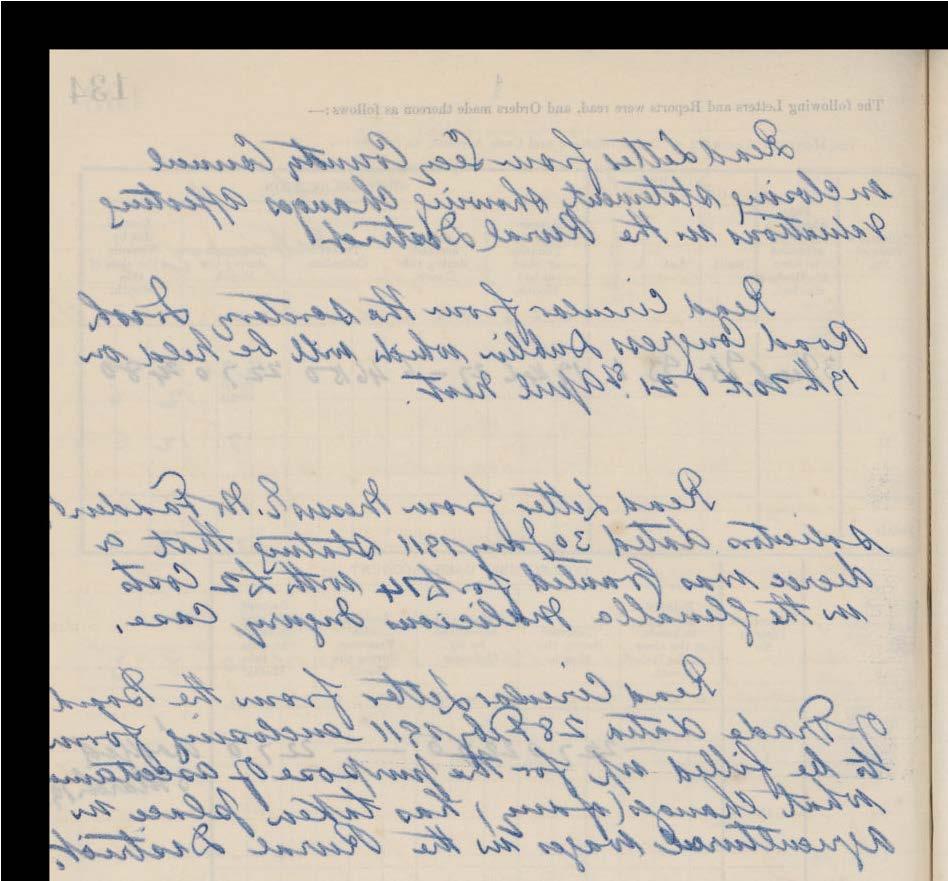 134
4
The following Letters and Reports were read, and Orders made thereon as follows :—
Read Letter from Secy County Council
enclosing statement showing Changes affecting
Valuations in the Rural District.
Read Circular from the Secretary Irish
Road Congress Dublin which will be held on
19th 20th & 21st April next.
Read Letter from Messrs E. McFadden &
Solicitors dated 30 Jany 1911 stating that a
decree was granted for £14 with £2 Costs
in the Glenalla Malicious Injury Case.
Read Circular Letter from the Board
of Trade dated 28 Feby 1911 enclosing form
to be filled up for the purpose of ascertaining
what change (if any) has taken place in
agricultural wages in the Rural District.